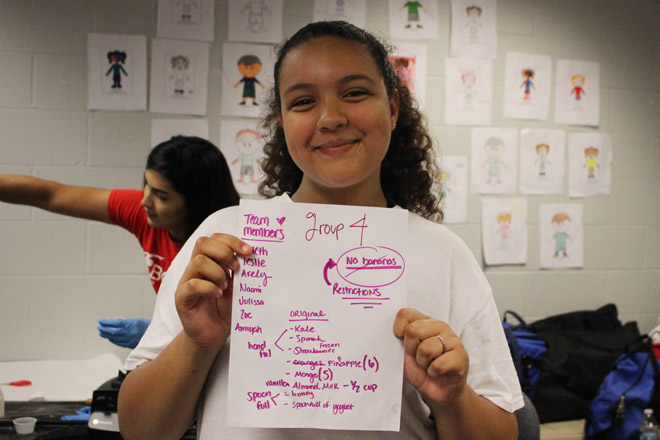 Team
members
group 4
Leslie
Arely
Naomi
Julissa
Zoe
Amiyah
No bananas
Restrictions
original
hand
full
- Kale
- Spinach
- Strawberries frozen
- oranges Pineapple (6)
- Mango (5)
vanilla Almond Milk - 1/2 cup
spoon
full
- honey
- spoonfull of yogurt